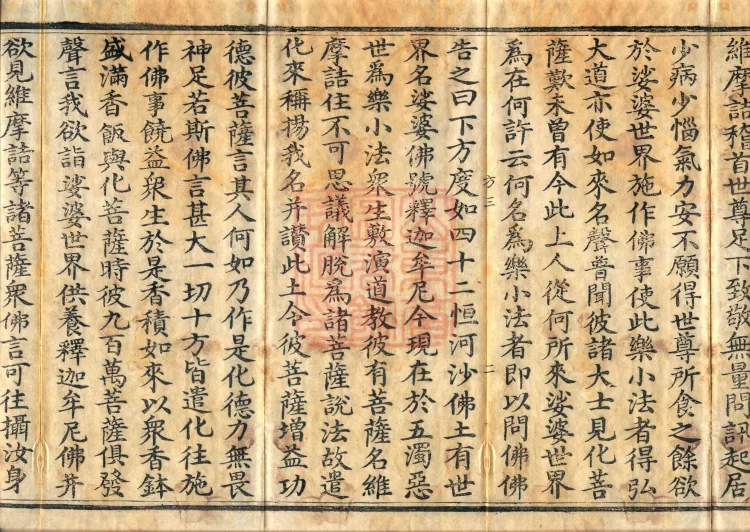 維摩詰稽首世尊足下致敬無量問訊起居
少病少惱氣力安不願得世尊所食之餘欲
於娑婆世界施作佛事使此樂小法者得弘
大道亦使如來名聲普聞彼諸大士見化菩
薩歎未曾有今此上人從何所來娑婆世界
為在何許云何名為樂小法者即以問佛佛
方三 二
告之曰下方度如四十二恒河沙佛土有世
界名娑婆佛號釋迦牟尼今現在於五濁惡
世為樂小法眾生敷演道教彼有菩薩名維
摩詰住不可思議解脫為諸菩薩說法故遣
化來稱揚我名并讚此土令彼菩薩增益功
德彼菩薩言其人何如乃作是化德力無畏
神足若斯佛言甚大一切十方皆遣化往施
作佛事饒益眾生於是香積如來以眾香鉢
盛滿香飯與化菩薩時彼九百萬菩薩俱發
聲言我欲詣娑婆世界供養釋迦牟尼佛并
欲見維摩詰等諸菩薩眾佛言可往攝汝身